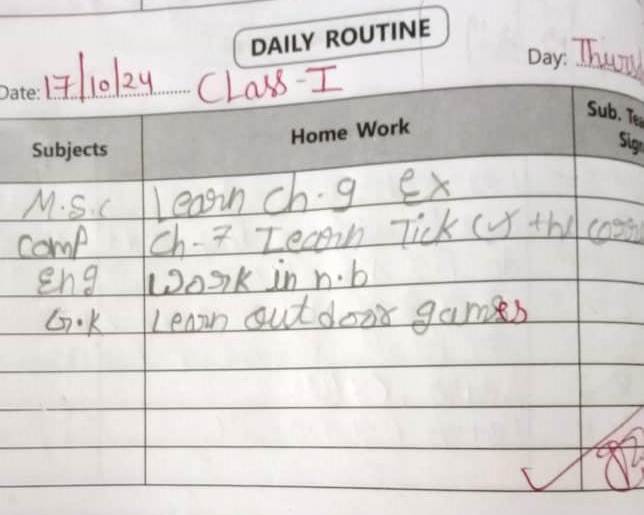 DAILY ROUTINE
Date: 17/10/24 Class-I Day: Thurs
Subjects Home Work Sub. Tea
Sign
M.S.c Learn Ch.9 Ex
Comp Ch-7 Learn Tick (✓) the corr
Eng Work in n.b
G.K Learn outdoor games